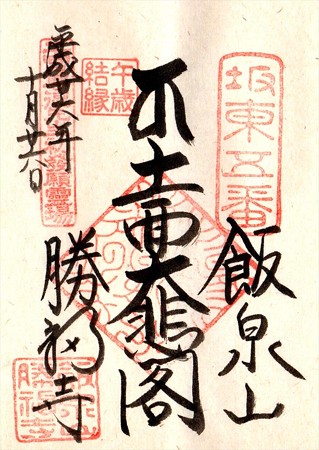 坂東五番
飯泉山
十一面大悲閣
午歳
結縁
勝福寺
平成廿六年
十月廿六日
發願靈場
飯泉山
勝福寺